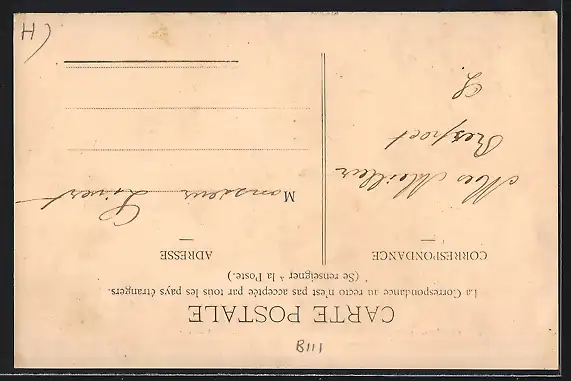 CARTE POSTALE
La Correspondance au recto n'est pas acceptée par tous les pays étrangers.
(Se renseigner à la Poste.)
CORRESPONDANCE
ADRESSE
Mes Meilleur
Respect
L.
Monsieur
B111
(H